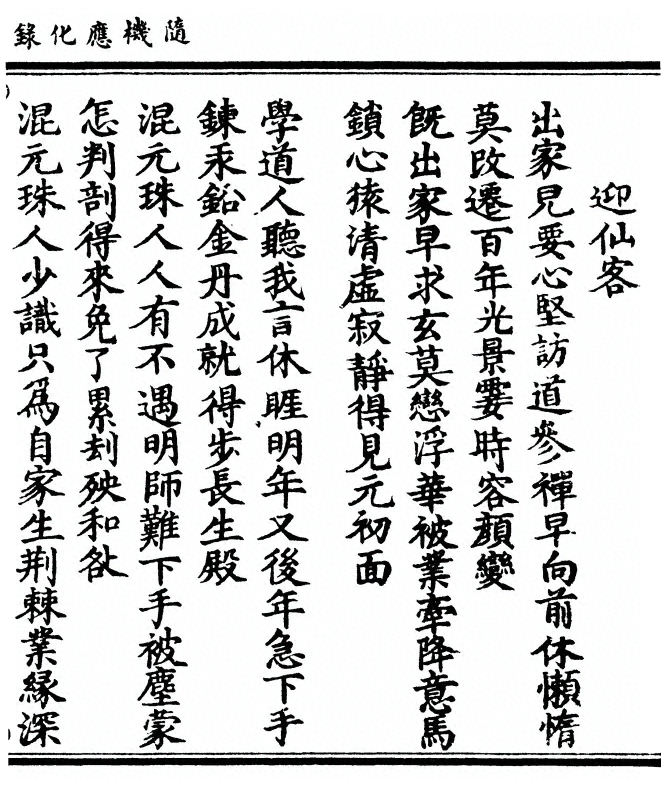 隨機應化錄
迎仙客
出家兒要心堅訪道參禪早向前休懶惰
莫改遷百年光景霎時容顏變
旣出家早求玄莫戀浮華被業牽降意馬
鎖心猿清虛寂靜得見元初面
學道人聽我言休睚明年又後年急下手
鍊汞鉛金丹成就得步長生殿
混元珠人人有不遇明師難下手被塵蒙
怎判剖得來免了累刼殃和咎
混元珠人少識只爲自家生荆棘業緣深